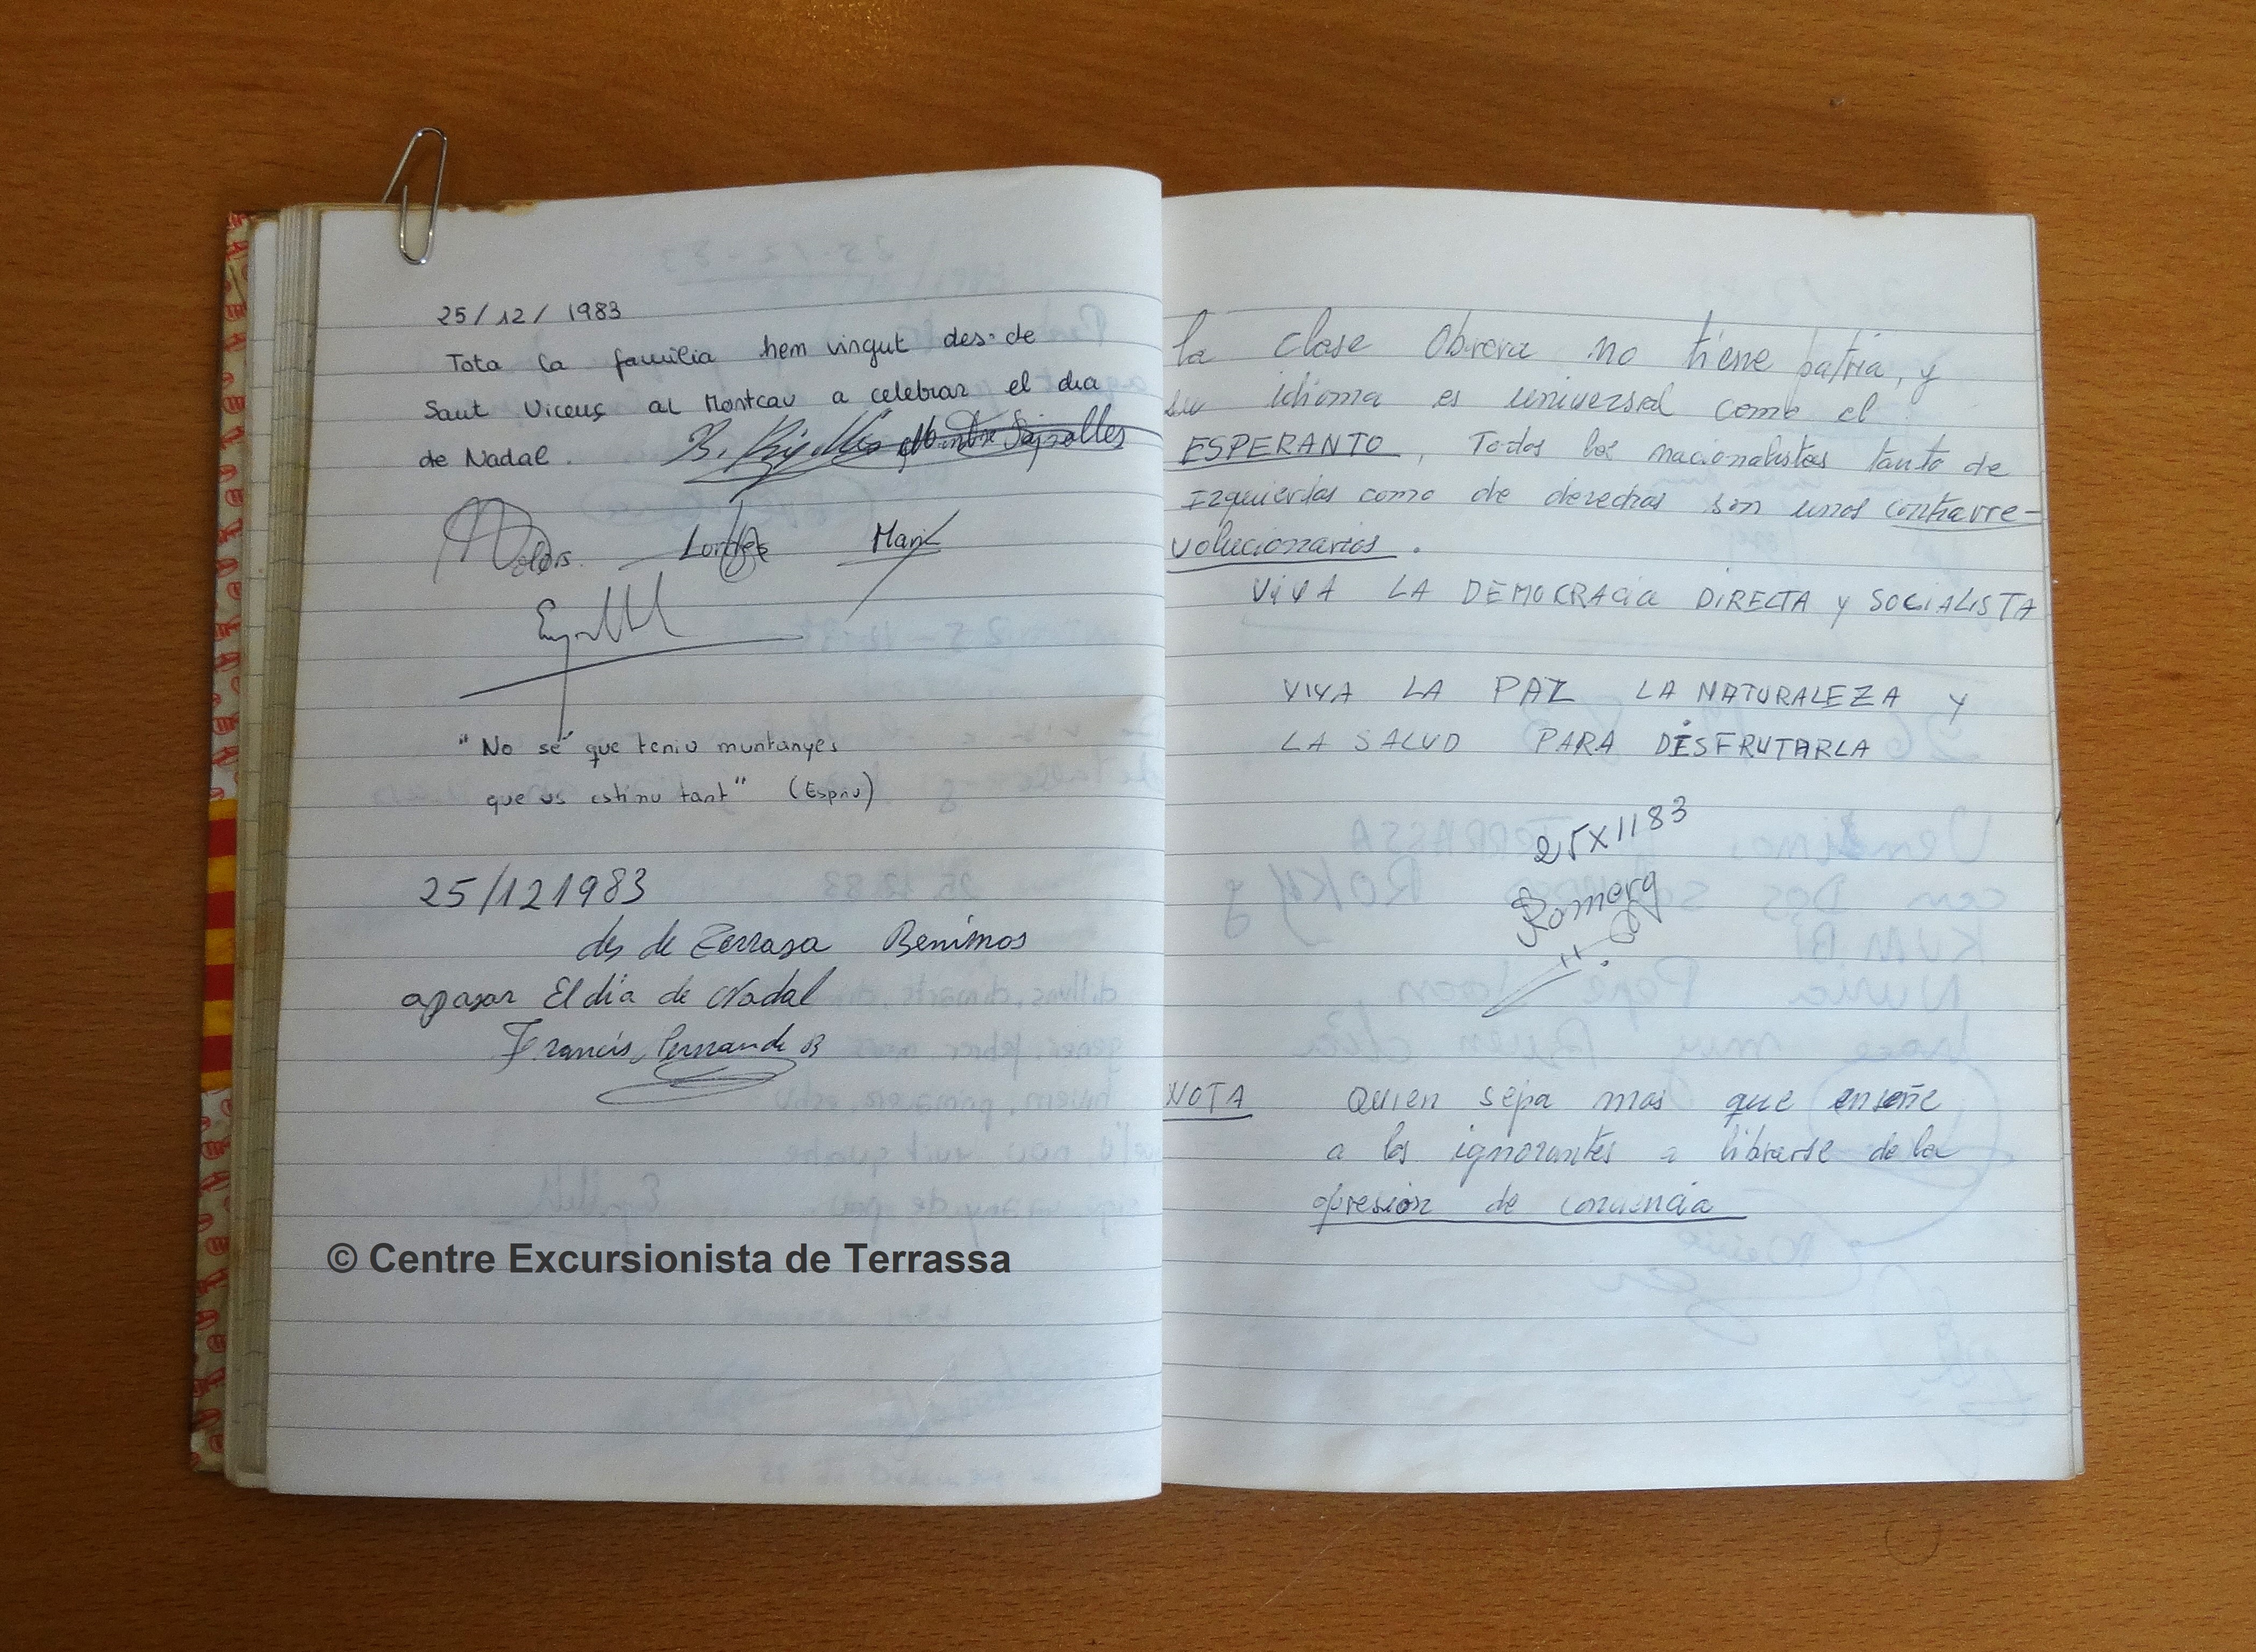 25/12/1983
Tota la familia hem vingut des-de
Sant Vicenç al Montcau a celebrar el dia
de Nadal. B.
Dolors. Lourdes Marix
"No sé que teniu muntanyes
que us estinu tant" (Espriu)
25/121983
des de Terrasa Benimos
apasar El dia de Nadal
Francis, Fernande
© Centre Excursionista de Terrassa
la clase Obrera no tiene patria, y
su idioma es universal como el
ESPERANTO, Todos los nacionalistas tanto de
Izquierdas como de derechas son unos contrarre-
volucionarios.
ViVA LA DEMOCRACia DiRECTA y SOCiALiSTA
VIVA LA PAZ LA NATURALEZA Y
LA SALUD PARA DiSFRUTARLA
25X1183
Romero
NOTA Quien sepa mas que enseñe
a los ignorantes a librarse de la
opresion de conciencia